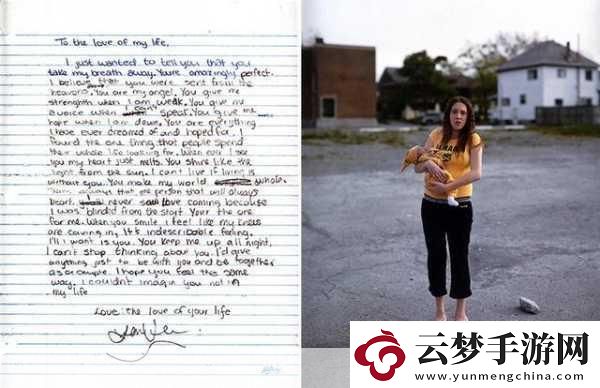 To the love of my life,
I just wanted to tell you that you
take my breath away. Youre amazingly perfect.
I believe that you were sent from the
heavens. You are my angel. You give me
strenghth when I am weak. You give me
a voice when I cant speak. You give me
hope when I am down. You are everything
I have ever dreamed of and hoped for. I
found the one thing that people spend
their whole life looking for. When ever I see
you my heart just melts. You shine like the
light from the sun. I can't live if living is
without you. You make my world whole.
always that one person that will always
heart. I never saw love coming because
I was blinded from the start. Your the one
for me. When you smile I feel like my knees
are caving in. It's indescribable feeling.
All I want is you. You keep me up all night,
I can't stop thinking about you. I'd give
anything just to be with you and be together
as a couple. I hope you feel the same
way. I couldn't imagine you not in
my life
Love: the love of your life
云梦手游网
www.yunmengchina.com